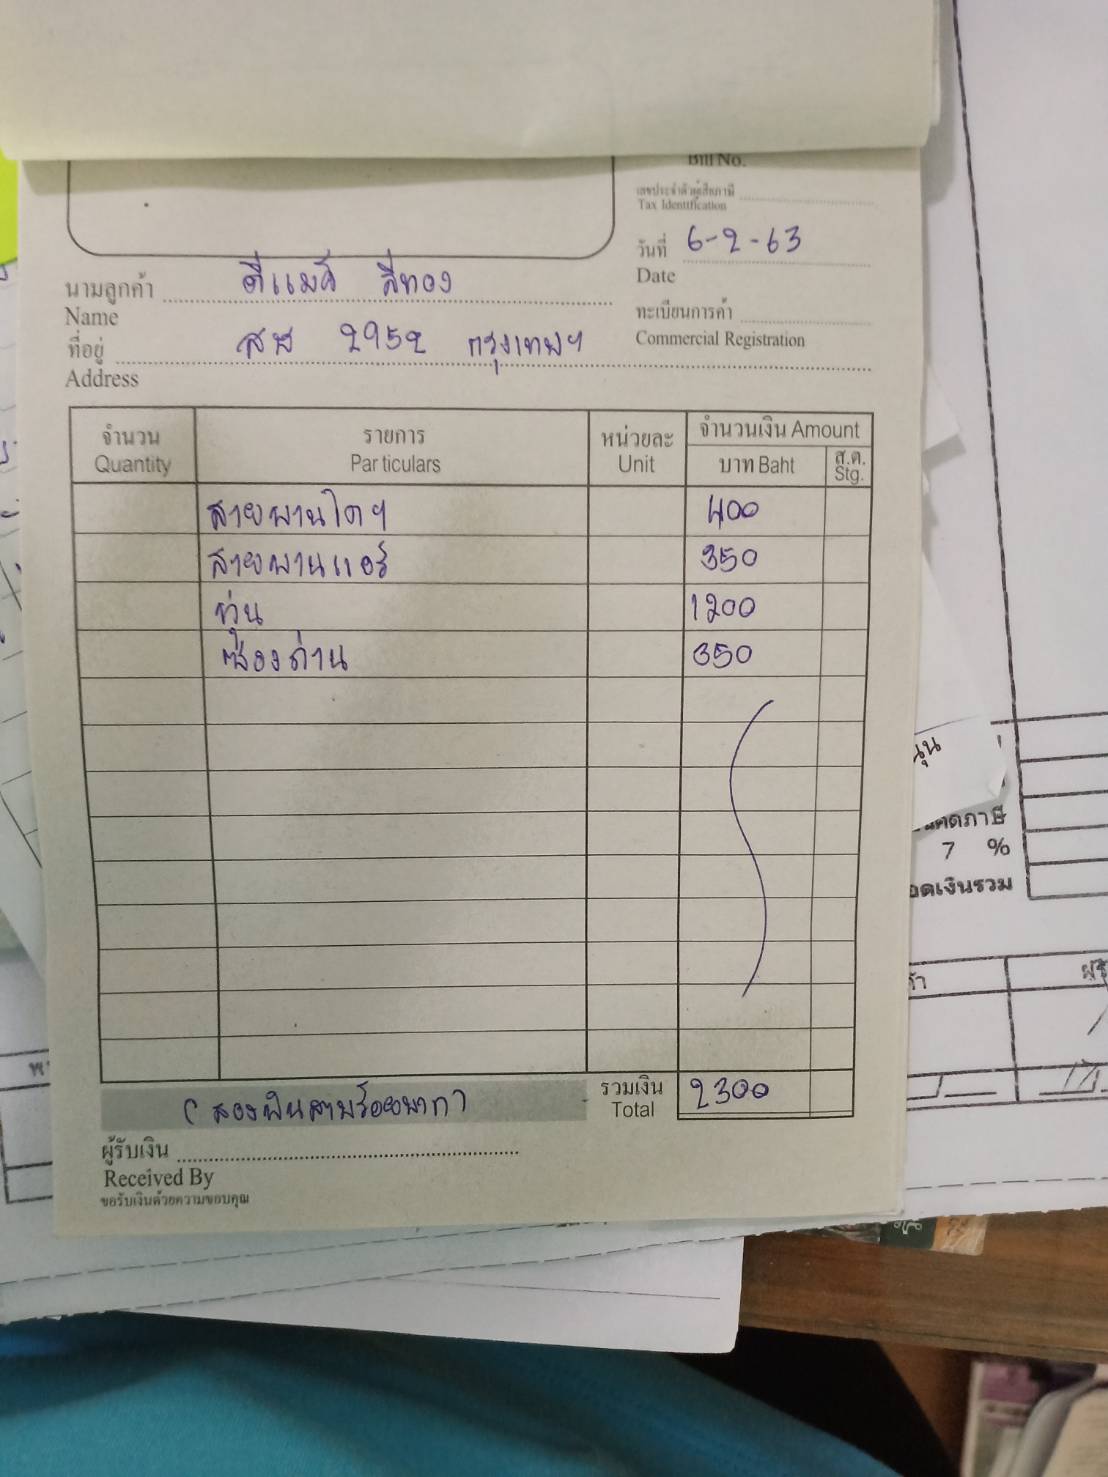 Bill No.
เลขประจำตัวผู้เสียภาษี
Tax Identification
วันที่ 6-2-63
Date
นามลูกค้า ดีแมคซ์ สีทอง
Name
ทะเบียนการค้า
Commercial Registration
ที่อยู่ 2952 กรุงเทพฯ
Address
จำนวน รายการ หน่วยละ จำนวนเงิน Amount
Quantity Particulars Unit บาท Baht ส.ต. Stg.
สายพานไดฯ 400
สายพานแอร์ 350
1200
ซองถ่าน 350
(สองพันสามร้อยบาท) รวมเงิน 2300
Total
ผู้รับเงิน
Received By
ขอรับเงินด้วยความขอบคุณ
7 %